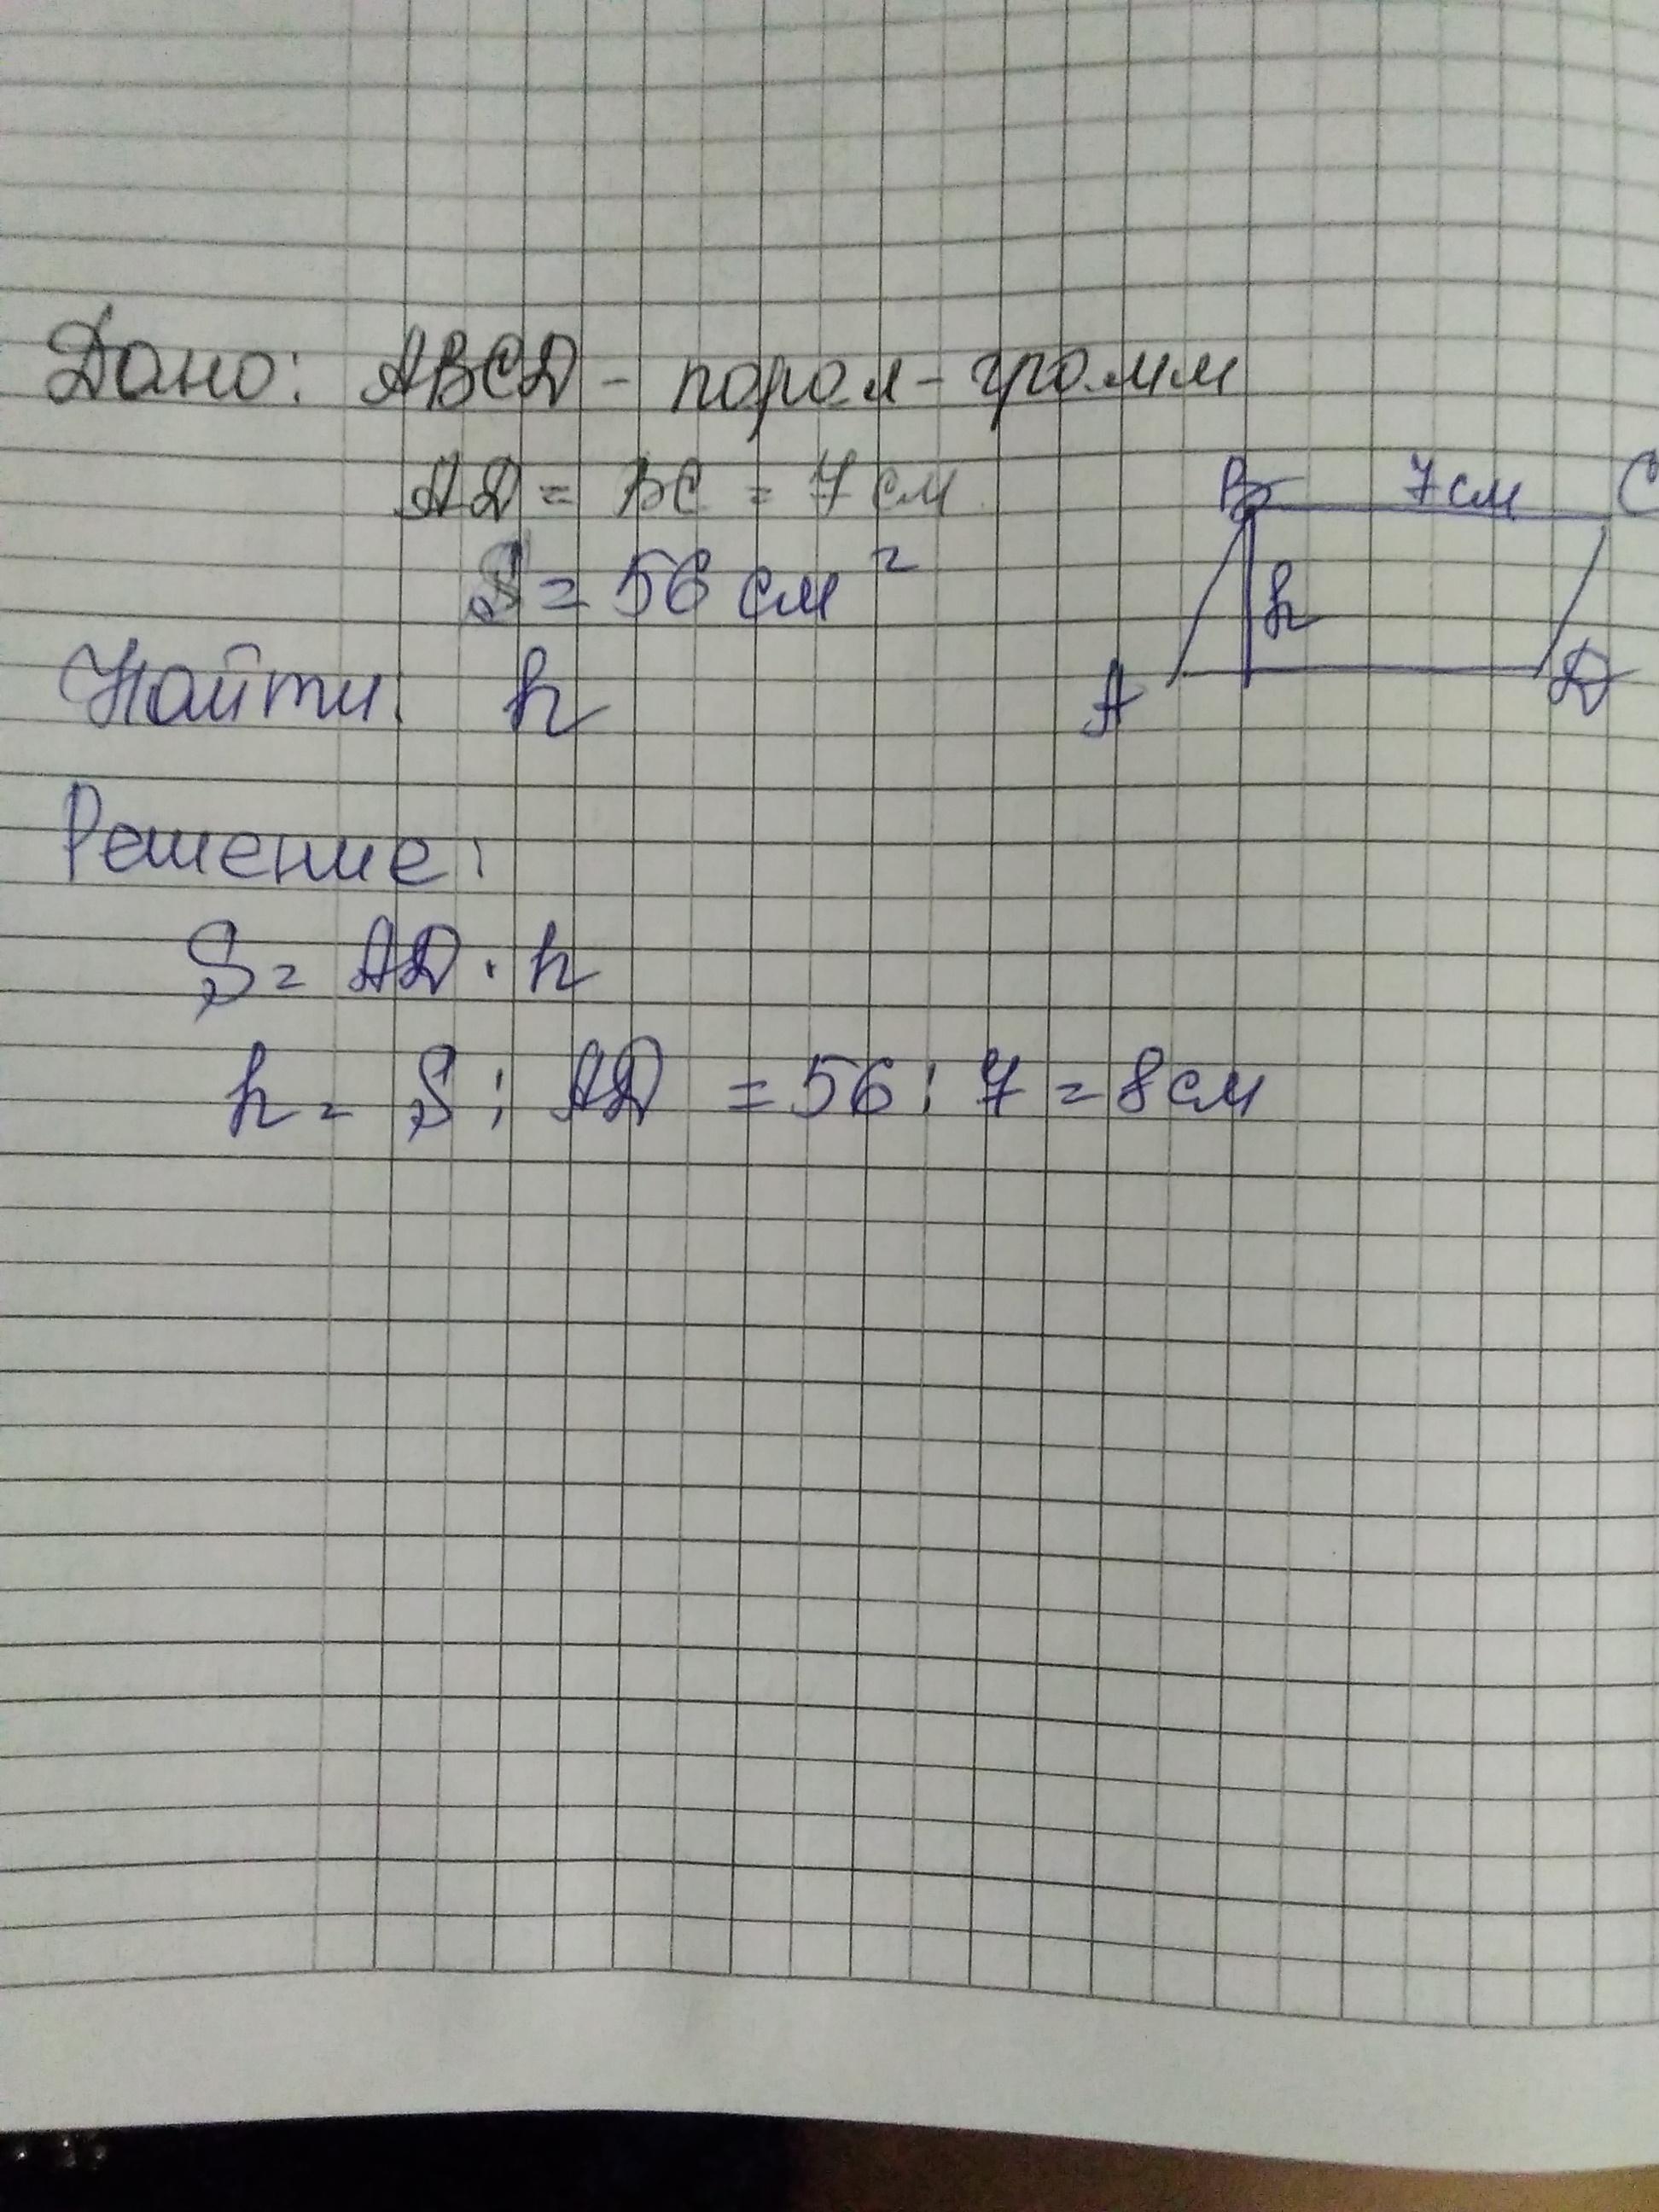 Дано: ABCD - парал-грамм
AD = BC = 7 см
S = 56 см²
B 7 см C
h
A D
Найти: h
Решение:
S = AD · h
h = S : AD = 56 : 7 = 8 см